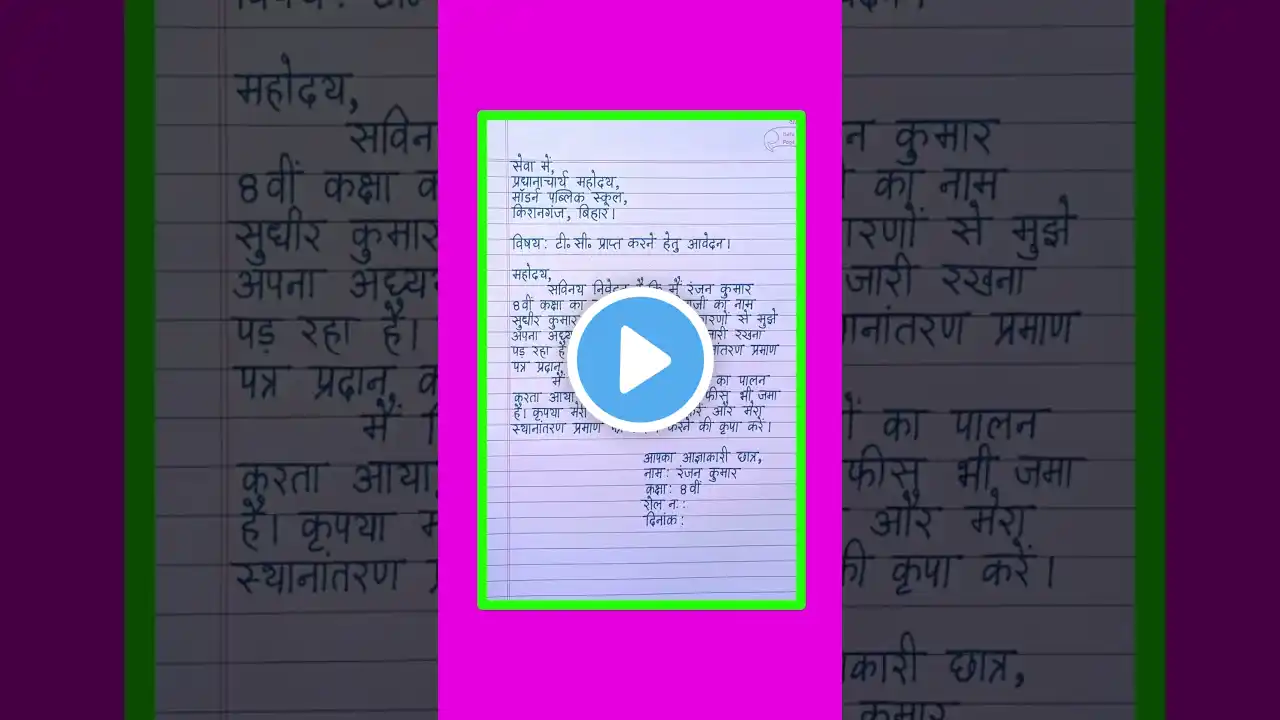 सेवा में,
प्रधानाचार्य महोदय,
मॉडर्न पब्लिक स्कूल,
किशनगंज, बिहार।
विषय: टी॰ सी॰ प्राप्त करने हेतु आवेदन।
महोदय,
सविनय निवेदन है कि मैं रंजन कुमार
8वीं कक्षा का नाम
सुधीर कुमार कारणों से मुझे
अपना जारी रखना
पड़ रहा है। स्थानांतरण प्रमाण
पत्र प्रदान
मैं का पालन
करता आया फीस भी जमा
है। कृपया और मेरा
स्थानांतरण प्रमाण करने की कृपा करें।
आपका आज्ञाकारी छात्र,
नाम: रंजन कुमार
कक्षा: 8वीं
रोल नः:
दिनांक: